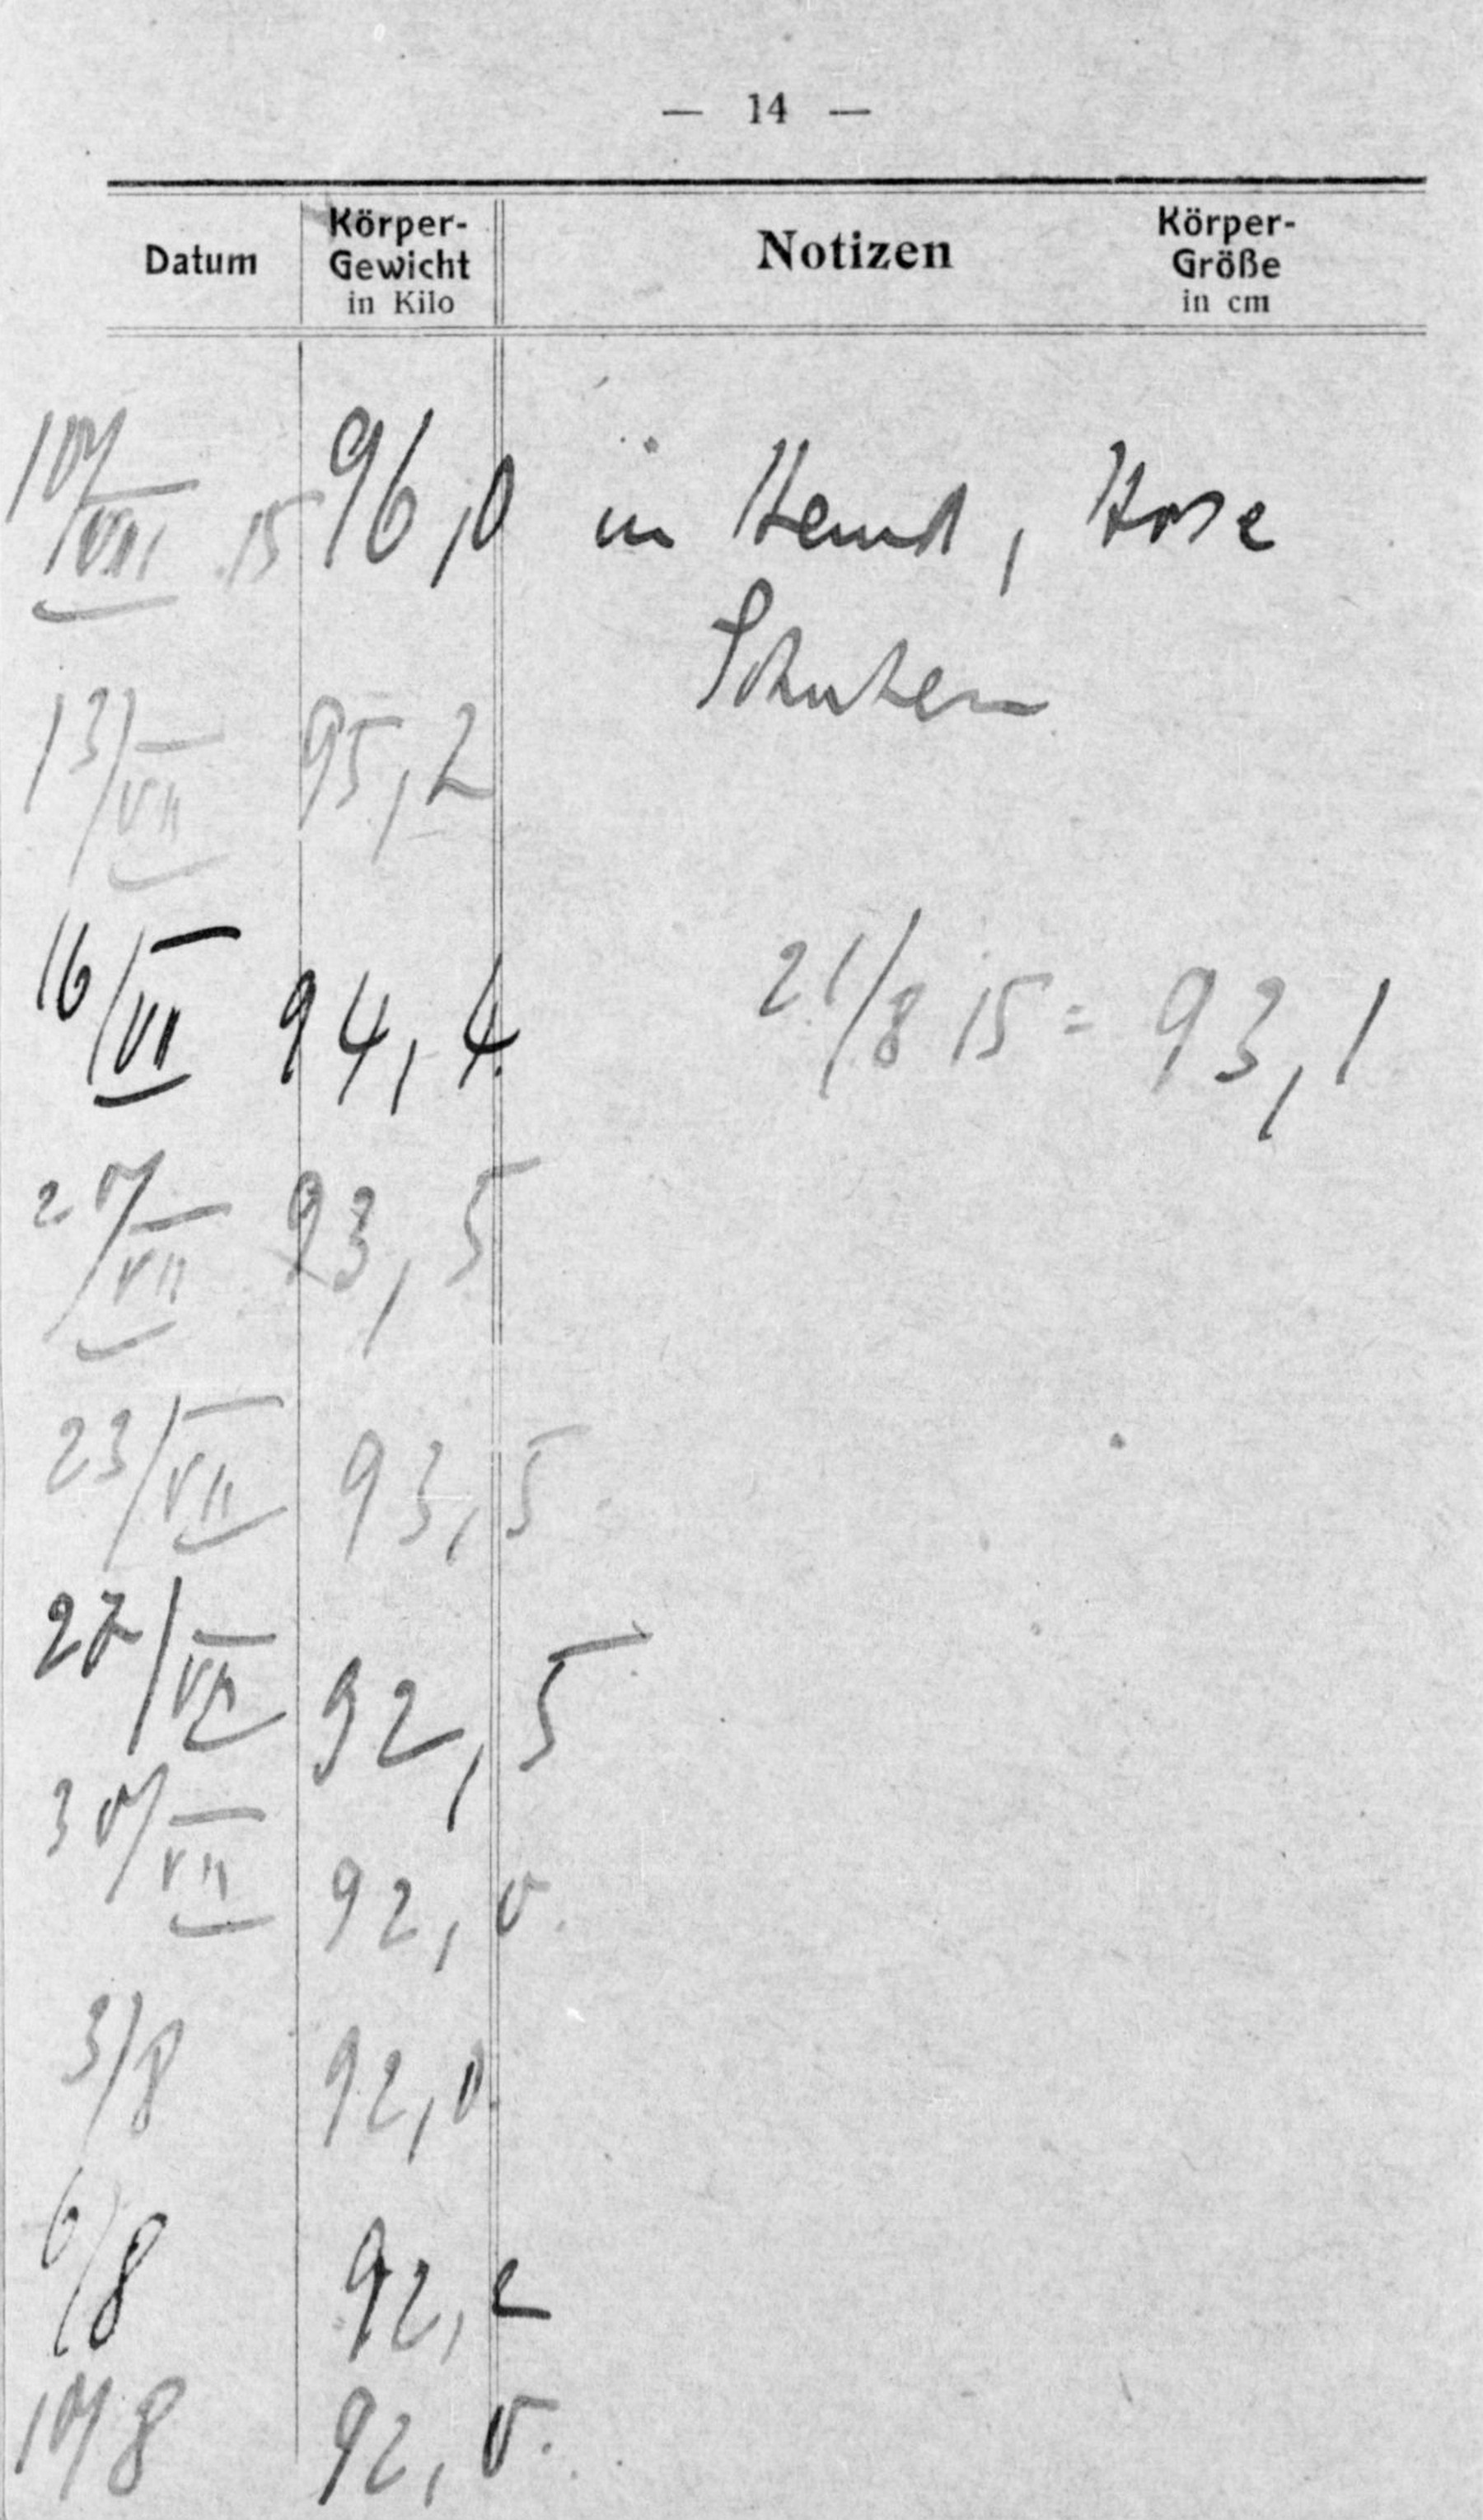 — 14 —
Datum Körper-Gewicht in Kilo Notizen Körper-Größe in cm
10/VII 15 96,0 in Hemd, Hose
Schuhen
13/VII 95,2
16/VII 94,4 21/8 15 = 93,1
20/VII 93,5
23/VII 93,5
27/VII 92,5
30/VII 92,0.
3/8 92,0
6/8 92,2
10/8 92,0.